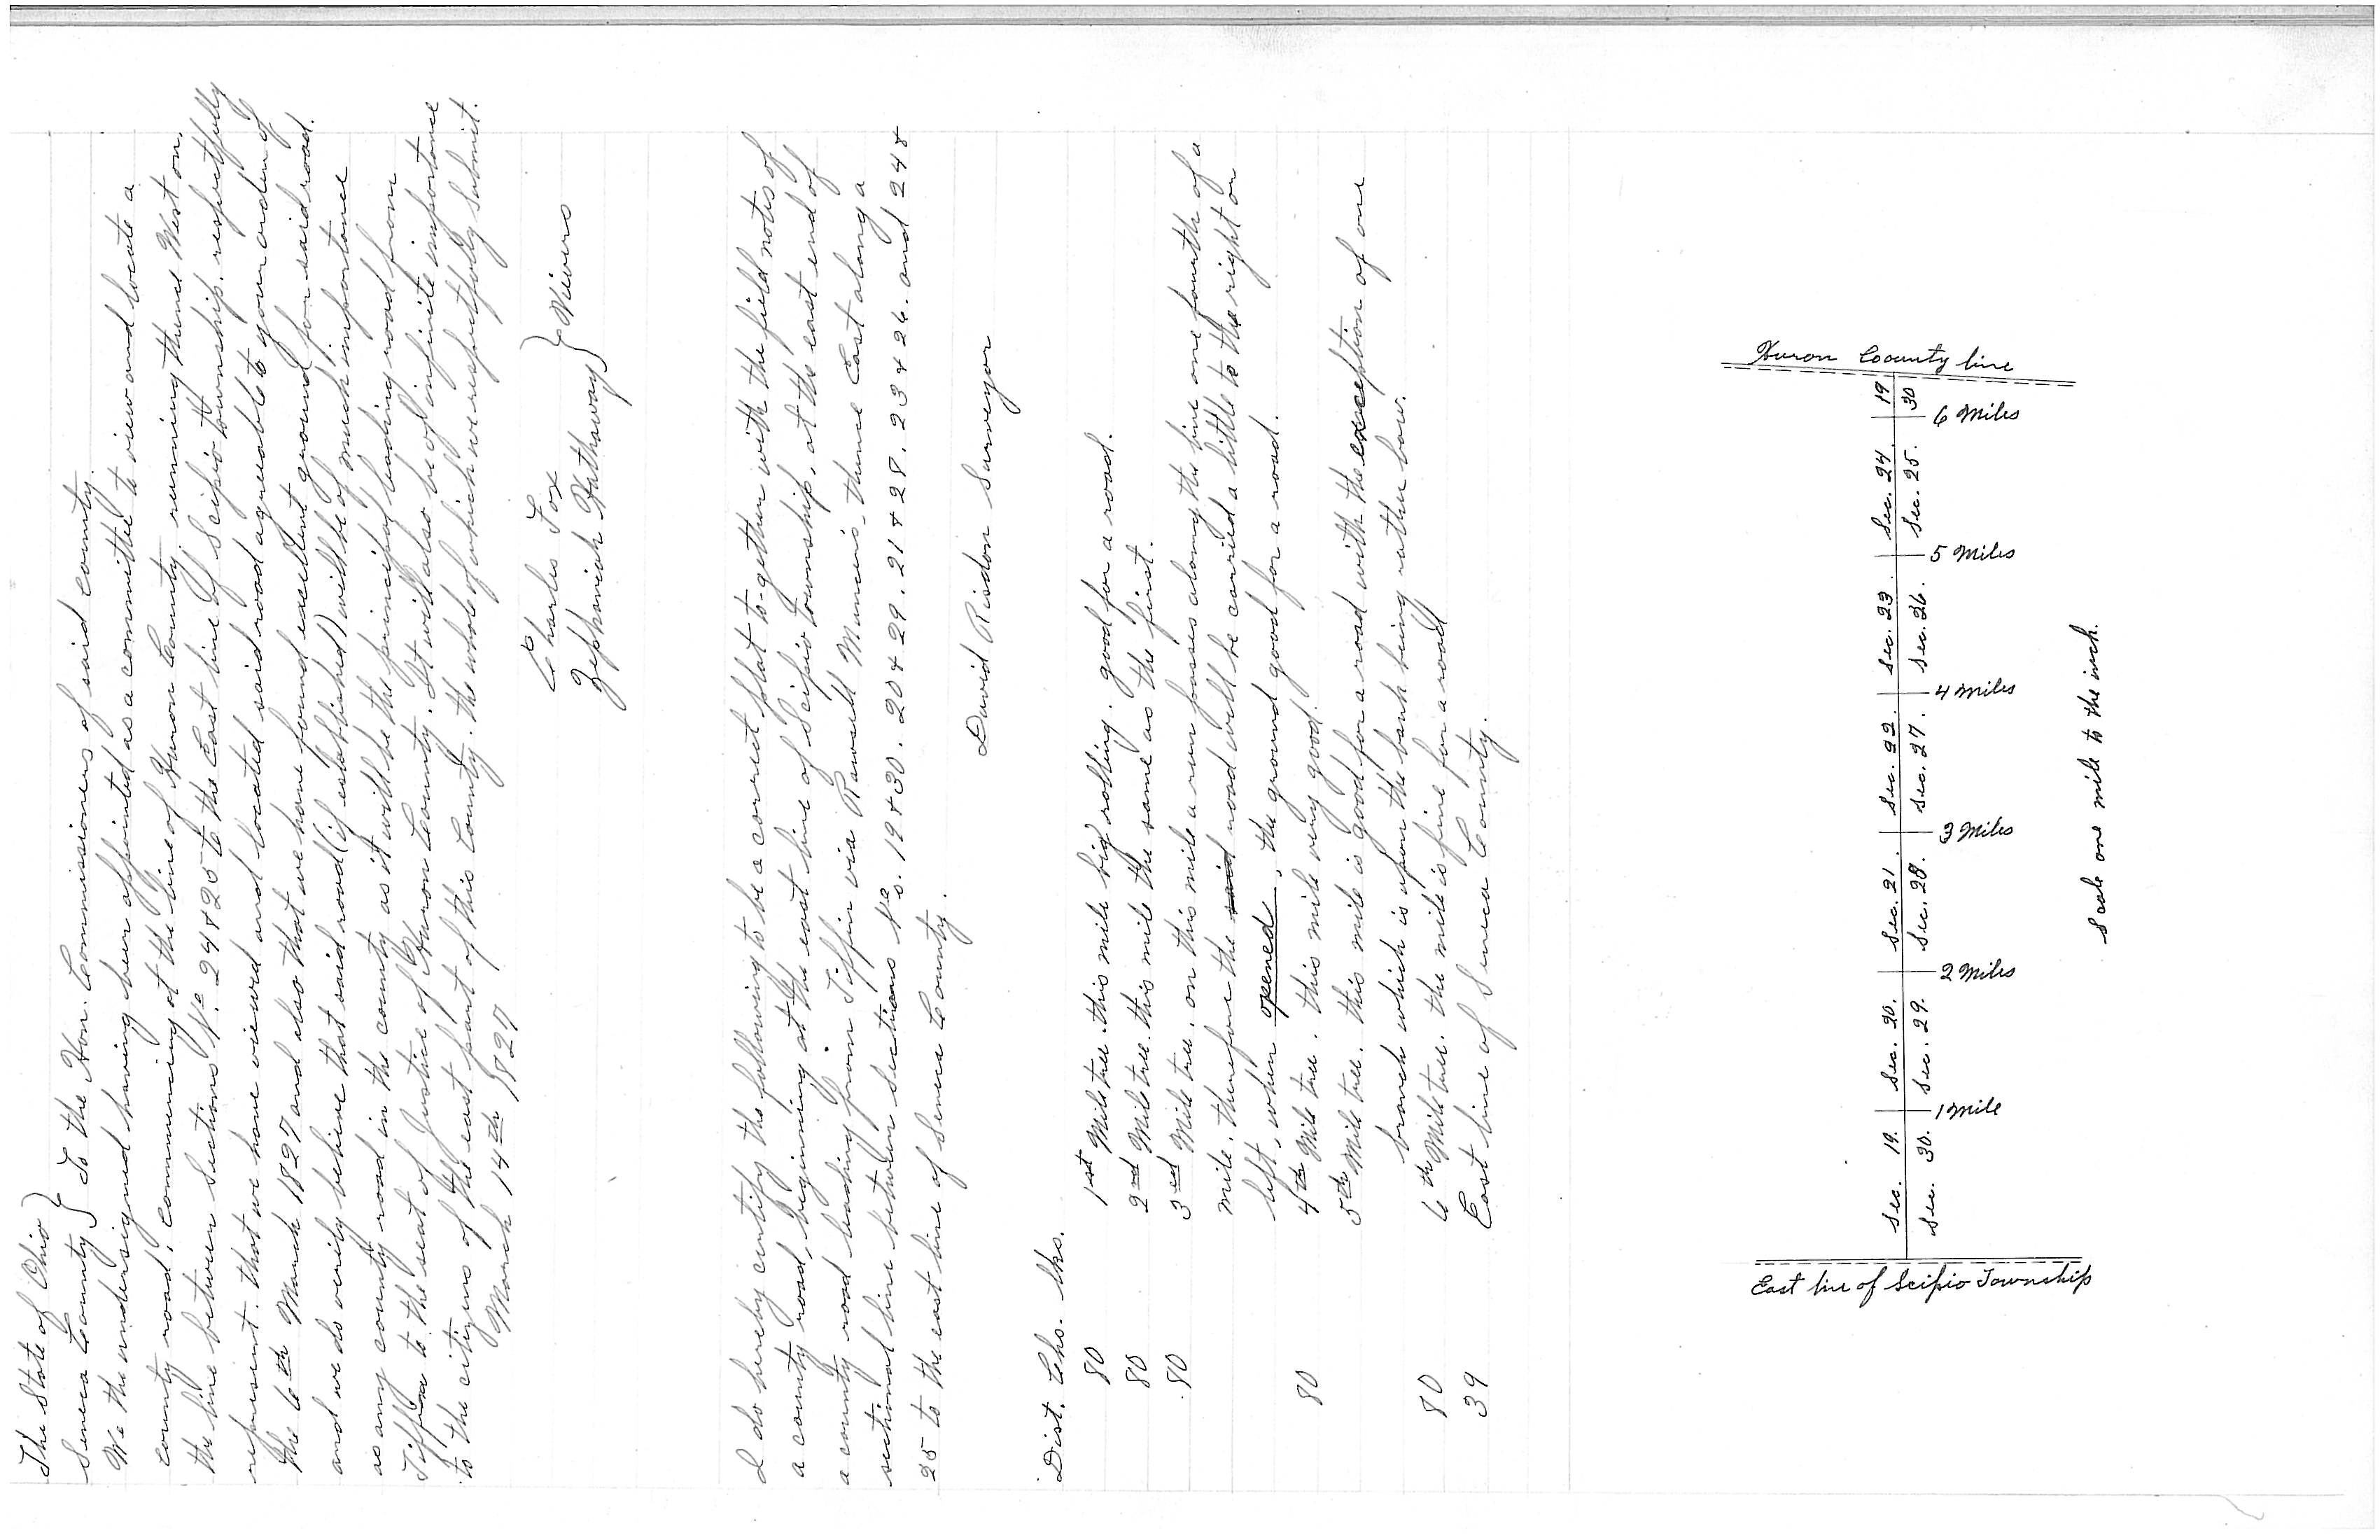 The State of Ohio }
Seneca County } To the Hon. Commissioners of said county.
We the undersigned having been appointed as a committee to view and locate a
county road, commencing at the line of Huron County, running thence West on
the line between sections No. 24 & 25 to the East line of Scipio township, respectfully
represent. that we have viewed and located said road agreeable to your order of
the 6th March 1827 and also that we have found excellent ground for said road.
and we do verily believe that said road (if established) will be of much importance
as any county road in the county as it will be the principal leading road from
Tiffin to the seat of Justice of Huron County. It will also be of infinite importance
to the citizens of the east part of this County. the whole of which we respectfully submit.
March 14th 1827
Charles Fox }
Zephaniah Hathaway } Viewers
I do hereby certify the following to be a correct plat to-gether with the field notes of
a county road, beginning at the east line of Scipio township, at the east end of
a county road leading from Tiffin via Rawell Muncin's thence East along a
sectional line between sections No. s. 19 & 30. 20 & 29. 21 & 28. 23 & 26. and 24 &
25 to the east line of Seneca County.
David Risdon Surveyor
Dist. Chs. lks.
80 1st Mile tree. this mile big rolling. good for a road.
80 2nd Mile tree. this mile the same as the first.
80 3rd Mile tree, on this mile a run passes along the line one fourth of a
mile, therefore the said road will be carried a little to the right or
left, when opened, the ground good for a road.
80 4th Mile tree. this mile very good.
5th Mile tree. this mile is good for a road with the exception of one
branch which is upon the bank being rather low.
80 6th Mile tree. the mile is fine for a road
39 East line of Seneca County.
Huron County line
19
30
6 Miles
Sec. 24
Sec. 25.
5 Miles
Sec. 23
Sec. 26.
4 Miles
Sec. 22.
Sec. 27.
3 Miles
Sec. 21.
Sec. 28.
2 Miles
Sec. 20.
Sec. 29.
1 Mile
Sec. 19.
Sec. 30.
East line of Scipio Township
Scale one mile to the inch.